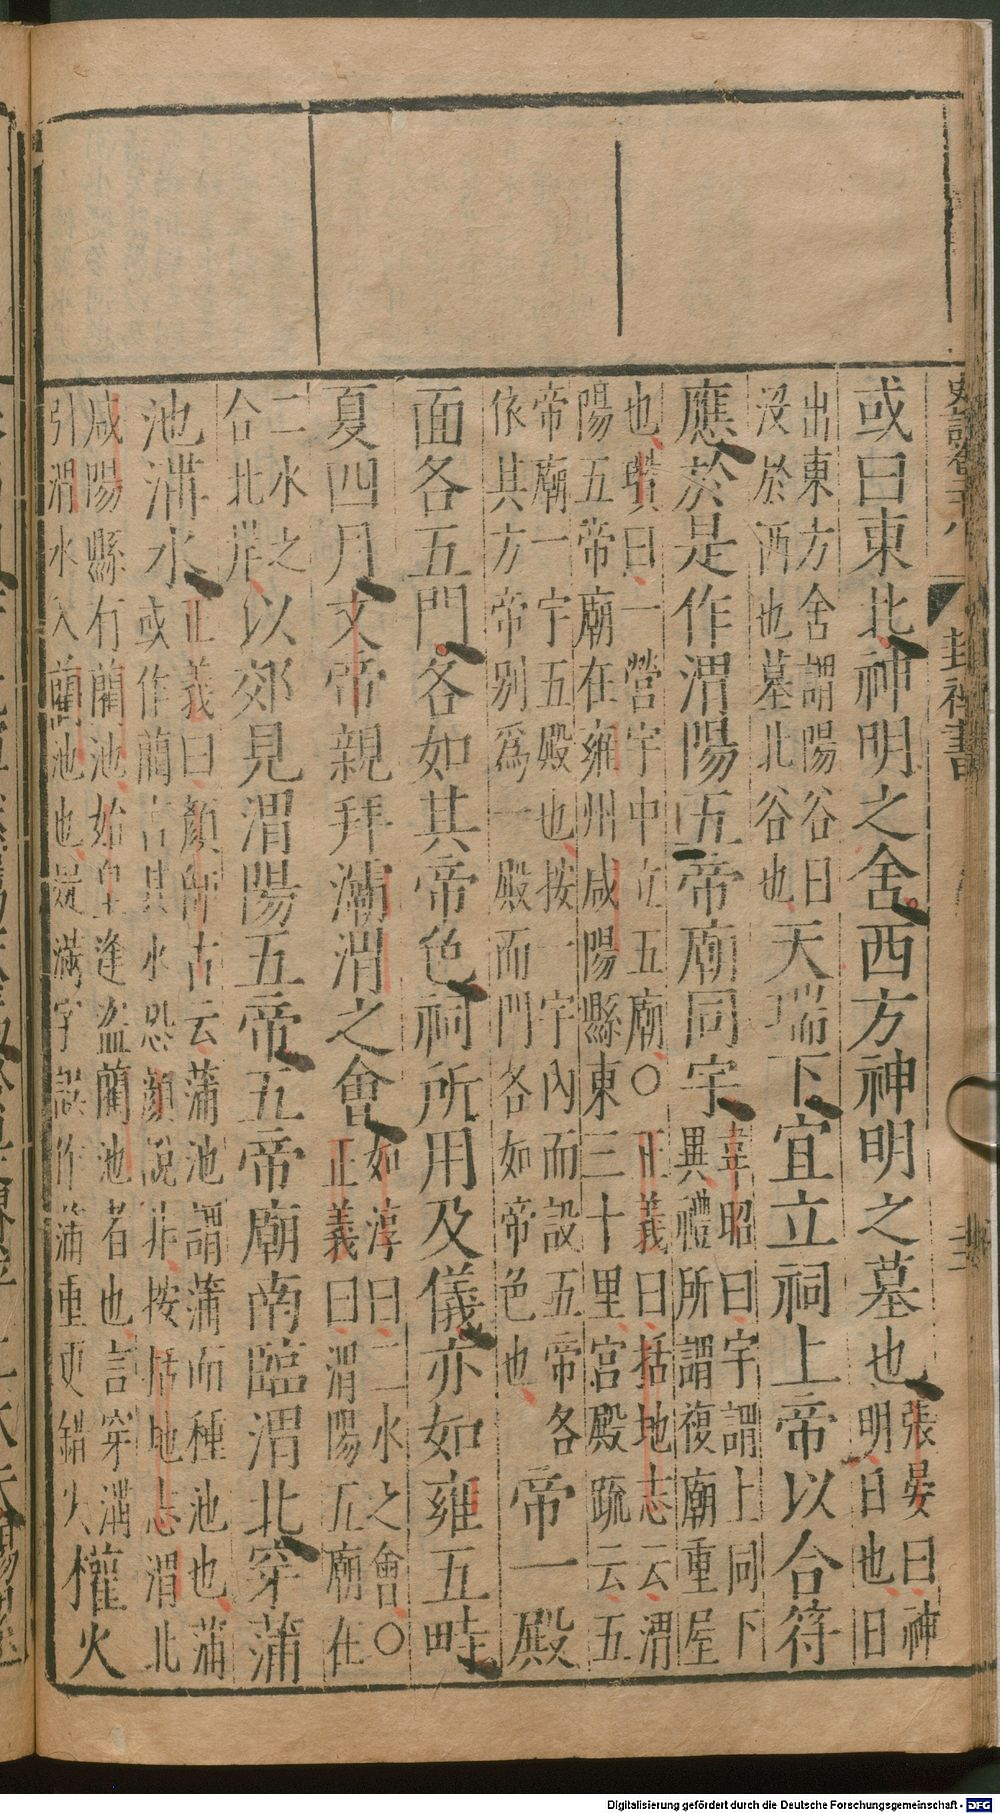 史記卷二十八
封禪書
或曰東北神明之舍西方神明之墓也張晏曰神
明日也日
出東方舍謂陽谷日
沒於西也墓北谷也天瑞下宜立祠上帝以合符
應於是作渭陽五帝廟同宇韋昭曰宇謂上同下
異禮所謂複廟重屋
也瓚曰一營宇中立五廟〇正義曰括地志云渭
陽五帝廟在雍州咸陽縣東三十里宮殿疏云五
帝廟一宇五殿也按一宇內而設五帝各
依其方帝別為一殿而門各如帝色也帝一殿
面各五門各如其帝色祠所用及儀亦如雍五畤
夏四月文帝親拜灞渭之會如淳曰二水之會〇
正義曰渭陽五廟在
二水之
合北岸以郊見渭陽五帝五帝廟南臨渭北穿蒲
池溝水正義曰顏師古云蒲池謂蒲而種池也蒲
或作蘭古其水恐顏說非按括地志渭北
咸陽縣有蘭池始皇逢盜蘭池者也言穿溝
引渭水入蘭池也疑滿字誤作蒲重更錯火權火
Digitalisierung gefördert durch die Deutsche Forschungsgemeinschaft - DFG